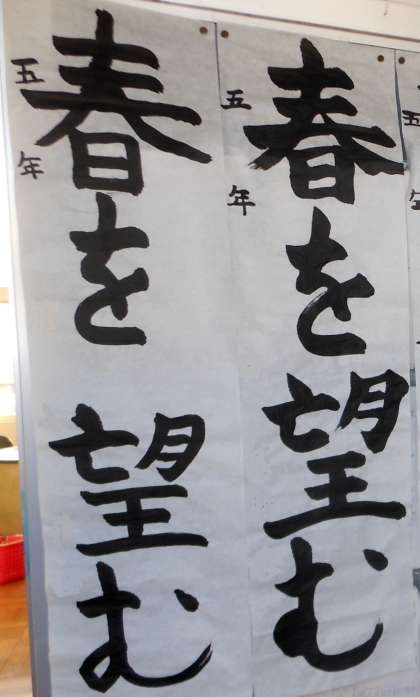 春を望む
五年
春を望む
五年
五